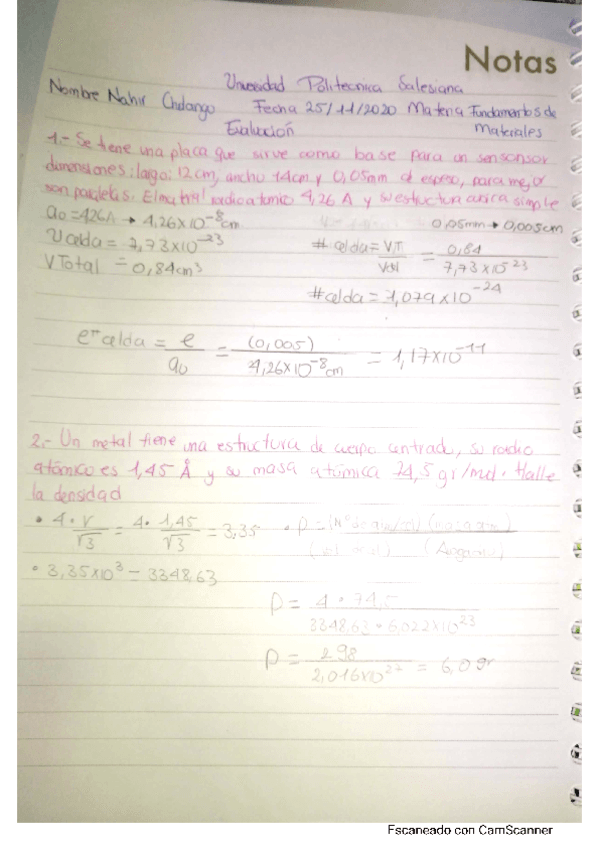 Notas
Universidad Politecnica Salesiana
Nombre Nahir Chulango Fecha 25/11/2020 Materia Fundamentos de
Evaluación Materiales
1.- Se tiene una placa que sirve como base para un sensonsor
dimensiones: largo: 12cm, ancho 14cm y 0,05mm de espeso, para mejor
son paraletas. El material radio atomico 4,26 A y su estructura cubica simple
a₀ = 426A → 4,26x10⁻⁸cm 0,05mm → 0,005cm
Vcelda = 7,73x10⁻²³ # celda = VT/Vcel = 0,84/7,73x10²³
VTotal = 0,84cm³
#celda = 1,079x10⁻²⁴
celda = e/a₀ = (0,005)/4,26x10⁻⁸cm = 1,17x10⁻¹¹
2.- Un metal tiene una estructura de cuerpo centrado, su radio
atómico es 1,45 Å y su masa atómica 74,5 gr/mol. Halle
la densidad
• 4·r/√3 = 4·1,45/√3 = 3,35 • P =
• 3,35x10³ = 3348,63
P = 4·74,5/3348,63·6,022x10²³
P = 298/2,016x10²⁷ = 6,0 gr
Escaneado con CamScanner